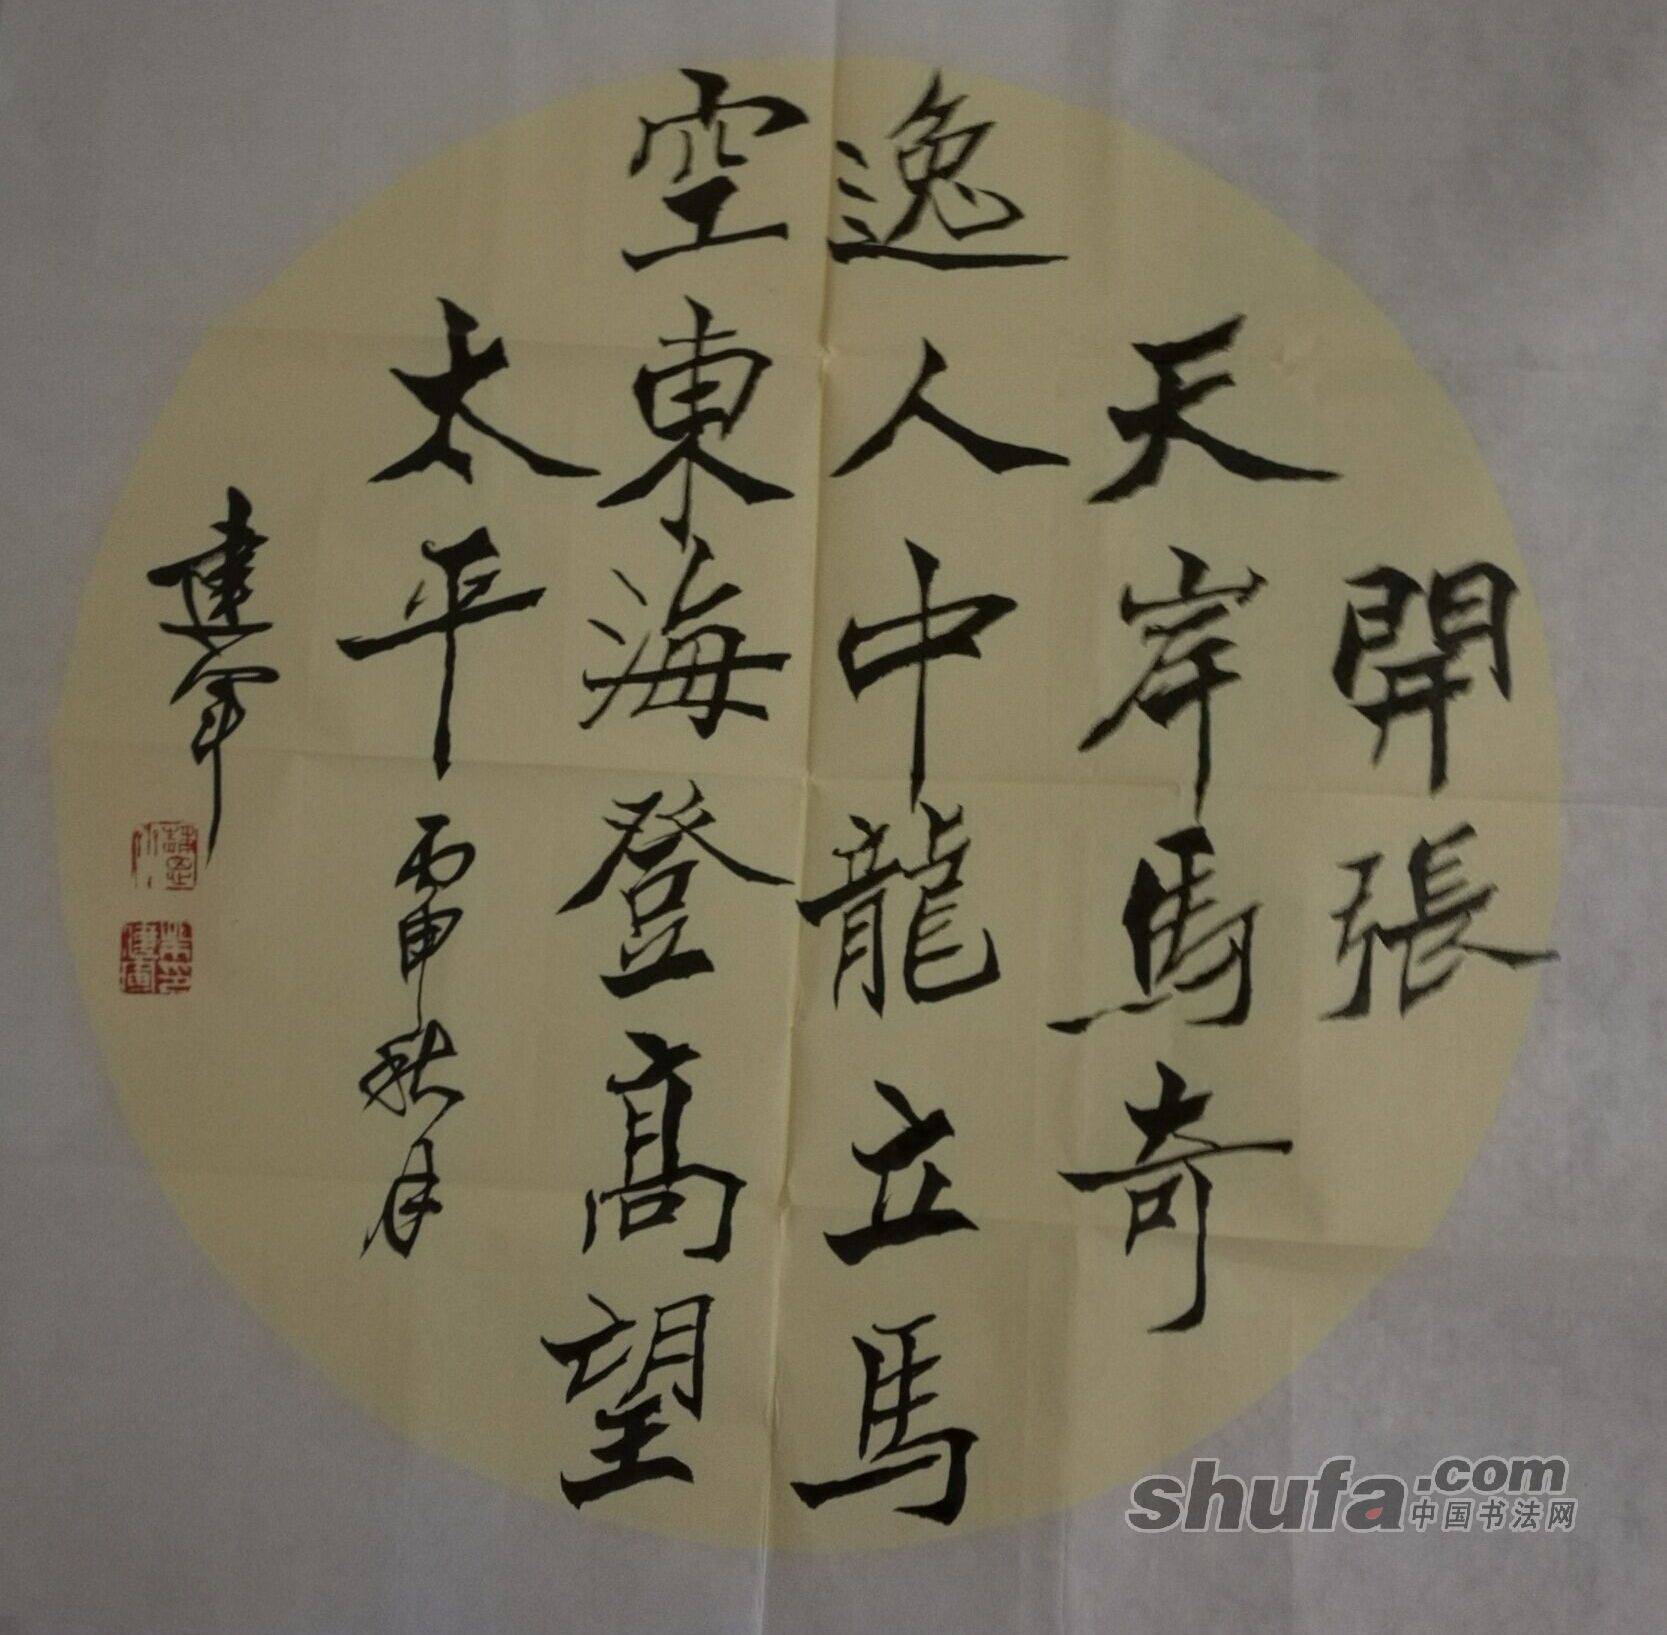 開張
天岸馬奇
逸人中龍立馬
空東海登高望
太平
丙申秋月
建軍
shufa.com
中国书法网